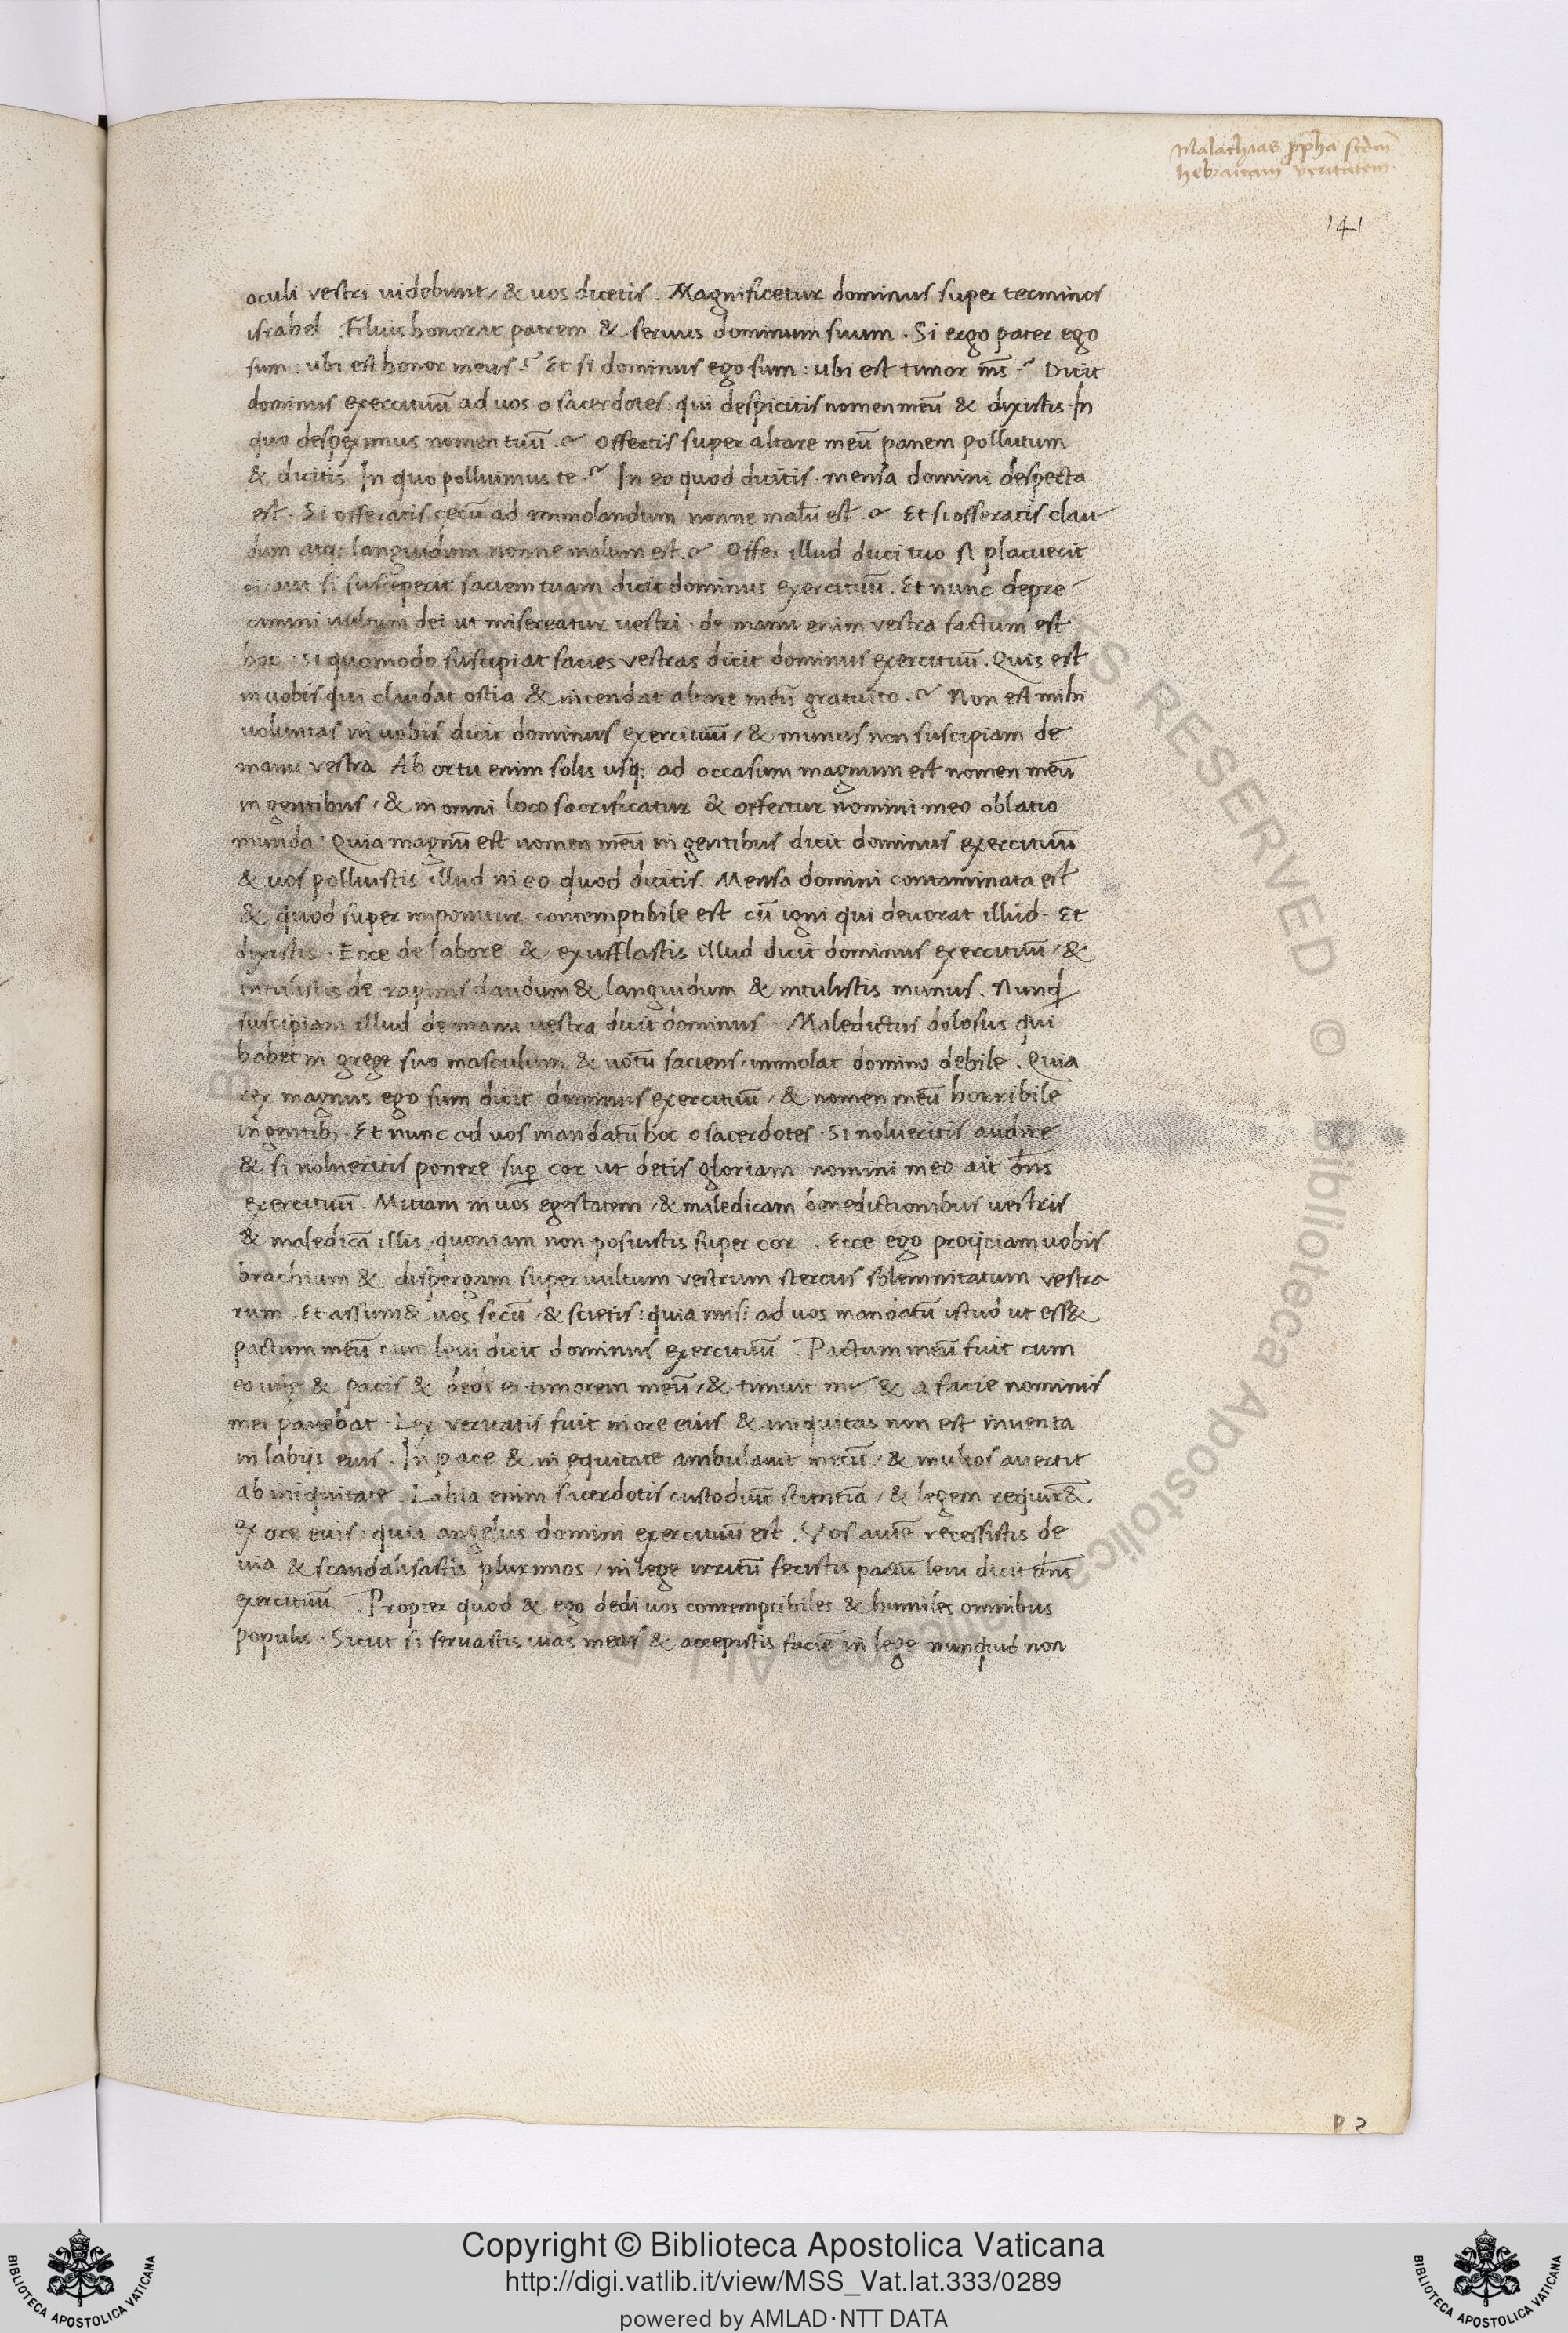 Malachias ꝓph̃a scdm̃
hebraicam veritatem
141
oculi vestri uidebunt / & uos dicetis . Magnificetur dominus super terminos
israhel . Filius honorat patrem & seruus dominum suum . Si ergo pater ego
sum : ubi est honor meus ? Et si dominus ego sum : ubi est timor m̄s ? Dicit
dominus exercituū ad uos o sacerdotes : qui despicitis nomen meū & dixistis . In
quo despeximus nomen tuū ? Offertis super altare meū panem pollutum
& dicitis In quo polluimus te ? In eo quod dicitis . mensa domini despecta
est . Si offeratis cecū ad immolandum nonne malū est ? Et si offeratis clau-
dum atq; languidum nonne malum est ? Offer illud duci tuo si placuerit
ei . aut si susceperit faciem tuam dicit dominus exercituū . Et nunc depre-
camini uultum dei ut misereatur uestri . de manu enim vestra factum est
hoc : si quomodo suscipiat facies vestras dicit dominus exercituū . Quis est
in uobis qui claudat ostia & incendat altare meū gratuito ? Non est mihi
uoluntas in uobis dicit dominus exercituū / & munus non suscipiam de
manu vestra Ab ortu enim solis usq; ad occasum magnum est nomen meū
in gentibus / & in omni loco sacrificatur & offertur nomini meo oblatio
munda . Quia magnū est nomen meū in gentibus dicit dominus exercituū
& uos polluistis illud in eo quod dicitis . Mensa domini contaminata est
& quod super imponitur contemptibile est cū igni qui deuorat illud . Et
dixistis . Ecce de labore & exufflastis illud dicit dominus exercituū / &
intulistis de rapinis claudum & languidum & intulistis munus . Nunqd
suscipiam illud de manu uestra dicit dominus . Maledictus dolosus qui
habet in grege suo masculum & uotū faciens / immolat domino debile . Quia
rex magnus ego sum dicit dominus exercituū / & nomen meū horribile
in gentib; . Et nunc ad uos mandatū hoc o sacerdotes . Si nolueritis audire
& si nolueritis ponere suꝑ cor ut detis gloriam nomini meo ait dn̄s
exercituū . Mittam in uos egestatem / & maledicam benedictionibus uestris
& maledicā illis / quoniam non posuistis super cor . Ecce ego proijciam uobis
brachium & dispergam super uultum vestrum stercus solemnitatum vestra
rum . Et assum& uos secū / & scietis : quia misi ad uos mandatū istud ut ess&
pactum meū cum leui dicit dominus exercituū . Pactum meū fuit cum
eo uitę & pacis & dedi ei timorem meū / & timuit me & a facie nominis
mei pauebat . Lex veritatis fuit in ore eius & iniquitas non est inuenta
in labijs eius . In pace & in equitate ambulauit mecū / & multos auertit
ab iniquitate . Labia enim sacerdotis custodiūt scientiā / & legem requir&
ex ore eius : quia angelus domini exercituū est . Vos autē recessistis de
uia & scandalisastis plurimos / in lege irritū fecistis pactū leui dicit dn̄s
exercituū . Propter quod & ego dedi uos contemptibiles & humiles omnibus
populis . Sicut si seruastis uias meas & accepistis faciē in lege nunquid non
P 2
BIBLIOTECA APOSTOLICA VATICANA
Copyright © Biblioteca Apostolica Vaticana
http://digi.vatlib.it/view/MSS_Vat.lat.333/0289
powered by AMLAD·NTT DATA
BIBLIOTECA APOSTOLICA VATICANA